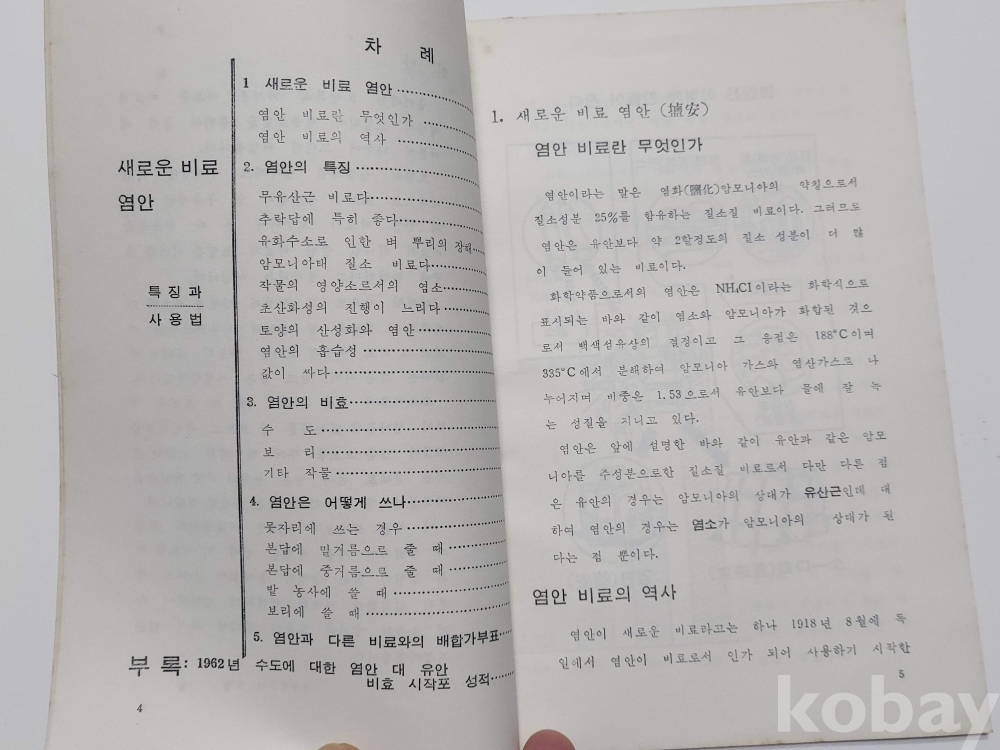 차 례
새로운 비료
염안
특징과
사용법
1 새로운 비료 염안
염안 비료란 무엇인가
염안 비료의 역사
2. 염안의 특징
무유산근 비료다
추락답에 특히 좋다
유화수소로 인한 벼 뿌리의 장해
암모니아태 질소 비료다
작물의 영양소로서의 염소
초산화성의 진행이 느리다
토양의 산성화와 염안
염안의 흡습성
값이 싸다
3. 염안의 비효
수 도
보 리
기타 작물
4. 염안은 어떻게 쓰나
못자리에 쓰는 경우
본답에 밑거름으로 줄 때
본답에 중거름으로 줄 때
밭 농사에 쓸 때
보리에 쓸 때
5. 염안과 다른 비료와의 배합가부표
부록: 1962년 수도에 대한 염안 대 유안
비효 시작포 성적
4
1. 새로운 비료 염안 (塩安)
염안 비료란 무엇인가
염안이라는 말은 염화(鹽化)암모니아의 약칭으로서
질소성분 25%를 함유하는 질소질 비료이다. 그러므로
염안은 유안보다 약 2할정도의 질소 성분이 더 많
이 들어 있는 비료이다.
화학약품으로서의 염안은 NH₄Cl이라는 화학식으로
표시되는 바와 같이 염소와 암모니아가 화합된 것으
로서 백색섬유상의 결정이고 그 융점은 188°C이며
335°C에서 분해하여 암모니아 가스와 염산가스로 나
누어지며 비중은 1.53으로서 유안보다 물에 잘 녹
는 성질을 지니고 있다.
염안은 앞에 설명한 바와 같이 유안과 같은 암모
니아를 주성분으로한 질소질 비료로서 다만 다른 점
은 유안의 경우는 암모니아의 상대가 유산근인데 대
하여 염안의 경우는 염소가 암모니아의 상대가 된
다는 점 뿐이다.
염안 비료의 역사
염안이 새로운 비료라고는 하나 1918년 8월에 독
일에서 염안이 비료로서 인가 되어 사용하기 시작한
5
kobay